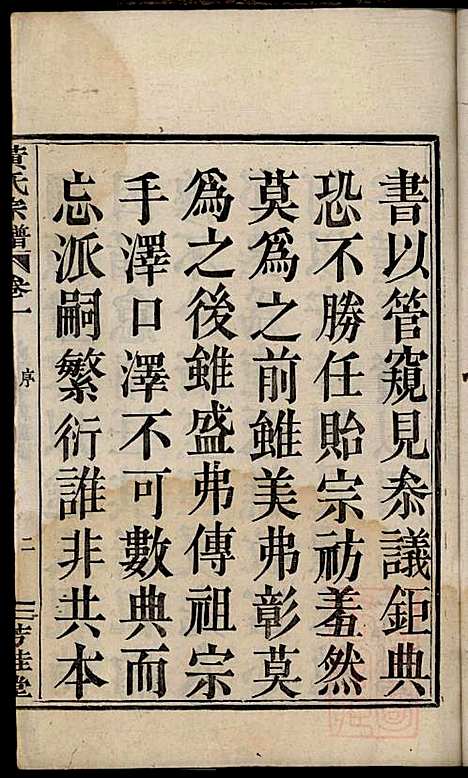 書以管窺見叅議鉅典
恐不勝任貽宗祊羞然
莫為之前雖美弗彰莫
為之後雖盛弗傳祖宗
手澤口澤不可數典而
忘派嗣繁衍誰非共本
黃氏宗譜 卷一 序 二 芳桂堂